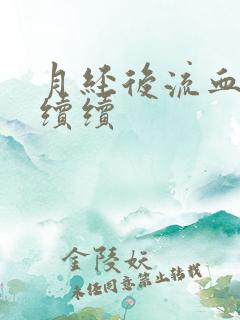 月經後流血
續續
金陵妖
未经同意禁止转载